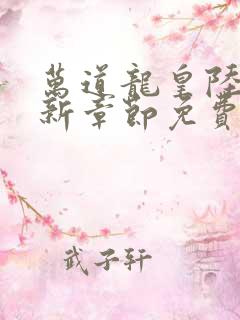 萬道龍皇陸
新章節免費
武子轩